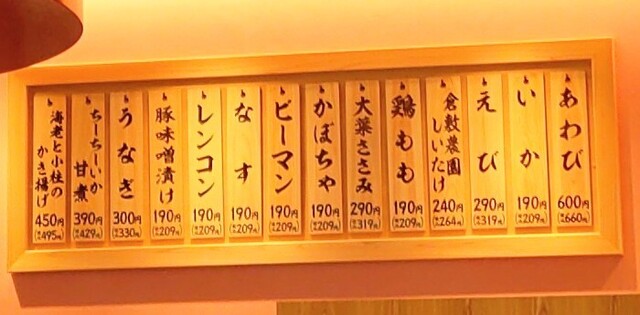 あわび
600円
(税込660円)
いか
190円
(税込209円)
えび
290円
(税込319円)
倉敷農園
しいたけ
240円
(税込264円)
鶏もも
190円
(税込209円)
大葉ささみ
290円
(税込319円)
かぼちゃ
190円
(税込209円)
ピーマン
190円
(税込209円)
なす
190円
(税込209円)
レンコン
190円
(税込209円)
豚味噌漬け
190円
(税込209円)
うなぎ
300円
(税込330円)
ちーちーいか
甘煮
390円
(税込429円)
海老と小柱の
かき揚げ
450円
(税込495円)